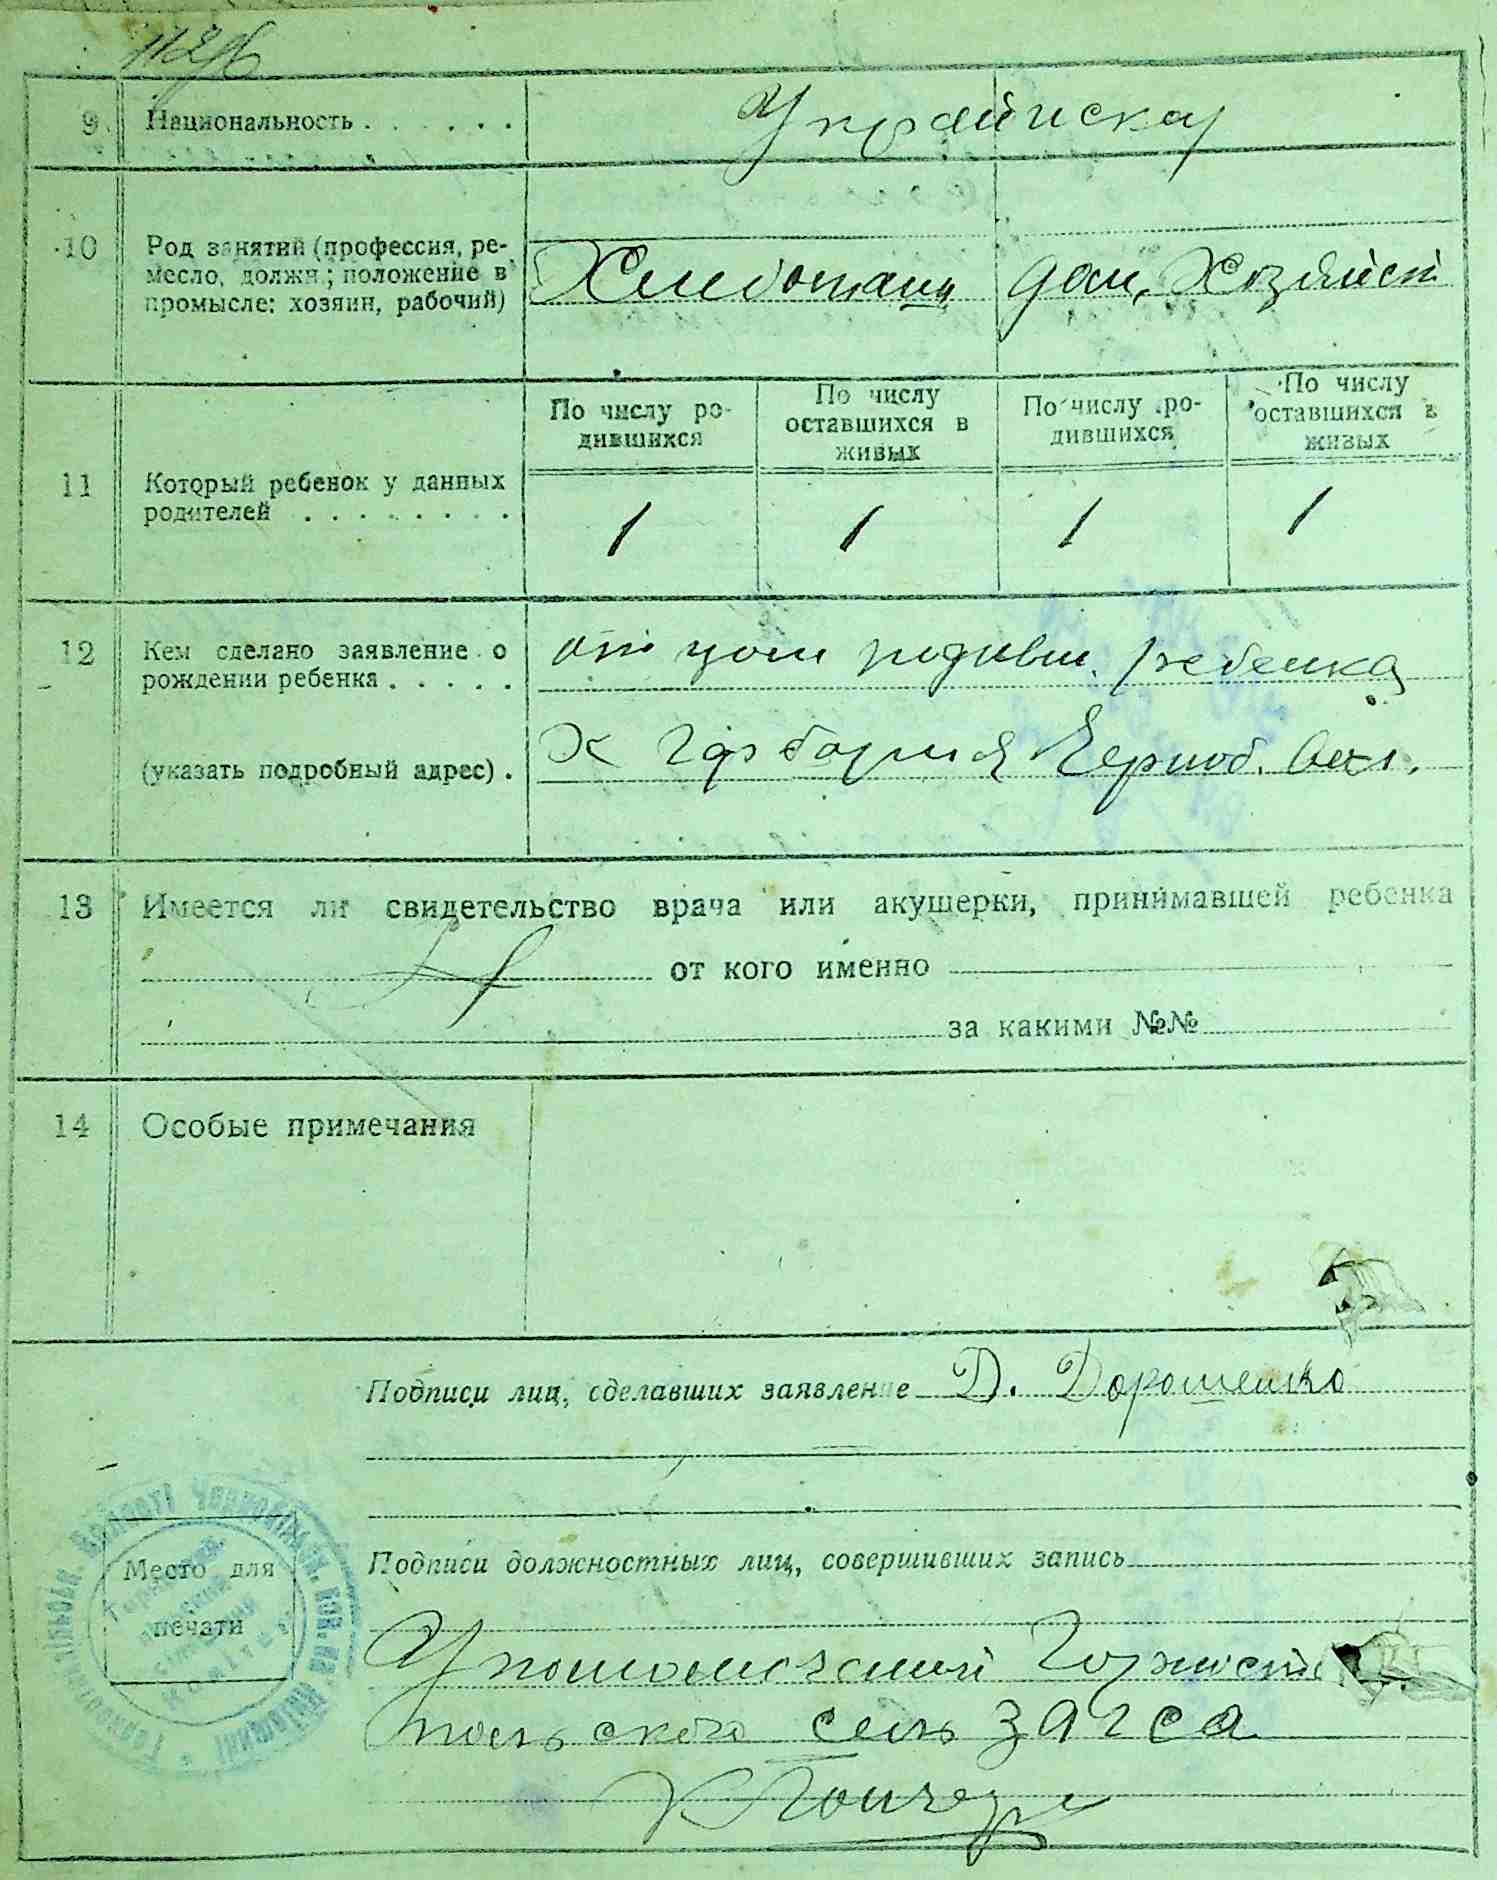 1126
9. Национальность . . . . . .
Украинская
10 Род занятий (профессия, ре-
месло, должн.; положение в
промысле: хозяин, рабочий)
Хлибопашц дом. Хозяйст
11 Который ребенок у данных
родителей . . . . . . . .
По числу ро-
дившихся
По числу
оставшихся в
живых
По числу ро-
дившихся
По числу
оставшихся в
живых
1 1 1 1
12 Кем сделано заявление о
рождении ребенка . . . . .
отцом родивш. ребенка
(указать подробный адрес) .
Черноб. вол.
13 Имеется ли свидетельство врача или акушерки, принимавшей ребенка
от кого именно
за какими №№
14 Особые примечания
Подписи лиц, сделавших заявление Д. Дорошенко
Подписи должностных лиц, совершивших запись
Место для
печати
Уполномоченный Горност
польского сель загса